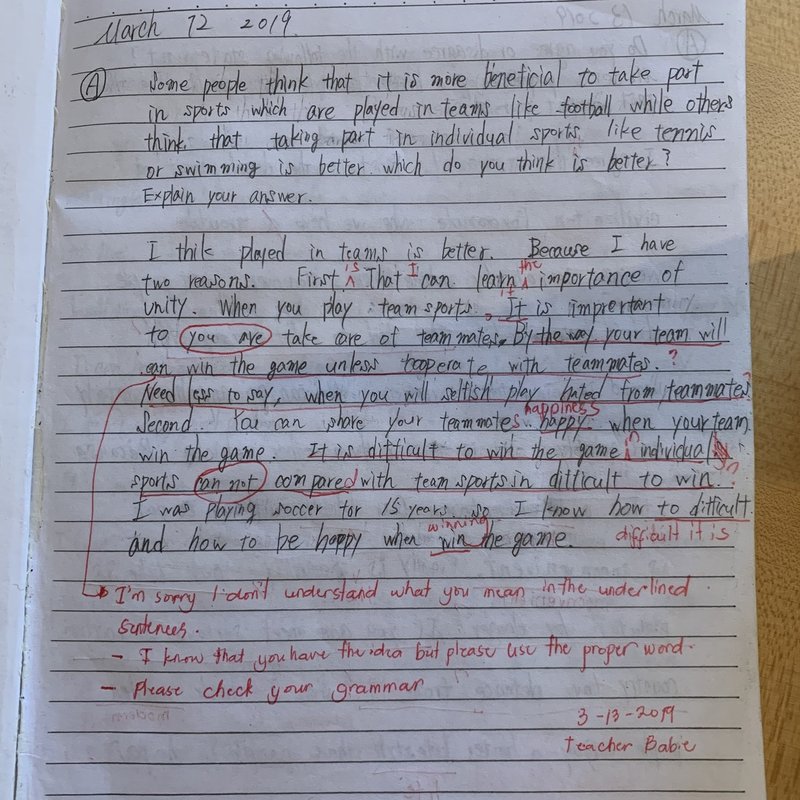 March 12 2019
Ⓐ Some people think that it is more beneficial to take part
in sports which are played in teams like football while others
think that taking part in individual sports, like tennis
or swimming is better which do you think is better?
Explain your answer.
I thik played in teams is better. Because I have
is I the
two reasons. First ^ That can learn ^ importance of
it
unity. When you play team sports. It is imprertant
to you are take care of teammates. By the way your team will
can win the game unless cooperate with teammates. ?
Need less to say, when you will selfish play hated from teammates?
happiness
Second. You can share your teammates happy when your team
win the game. It is difficult to win the game in individual
sports can not compared with team sports in difficult to win.
I was playing soccer for 15 years. so I know how to difficult
winning difficult it is
and how to be happy when win the game.
I'm sorry I don't understand what you mean in the underlined
sentences.
- I know that you have the idea but please use the proper word.
- Please check your grammar
3-13-2019
teacher Babie